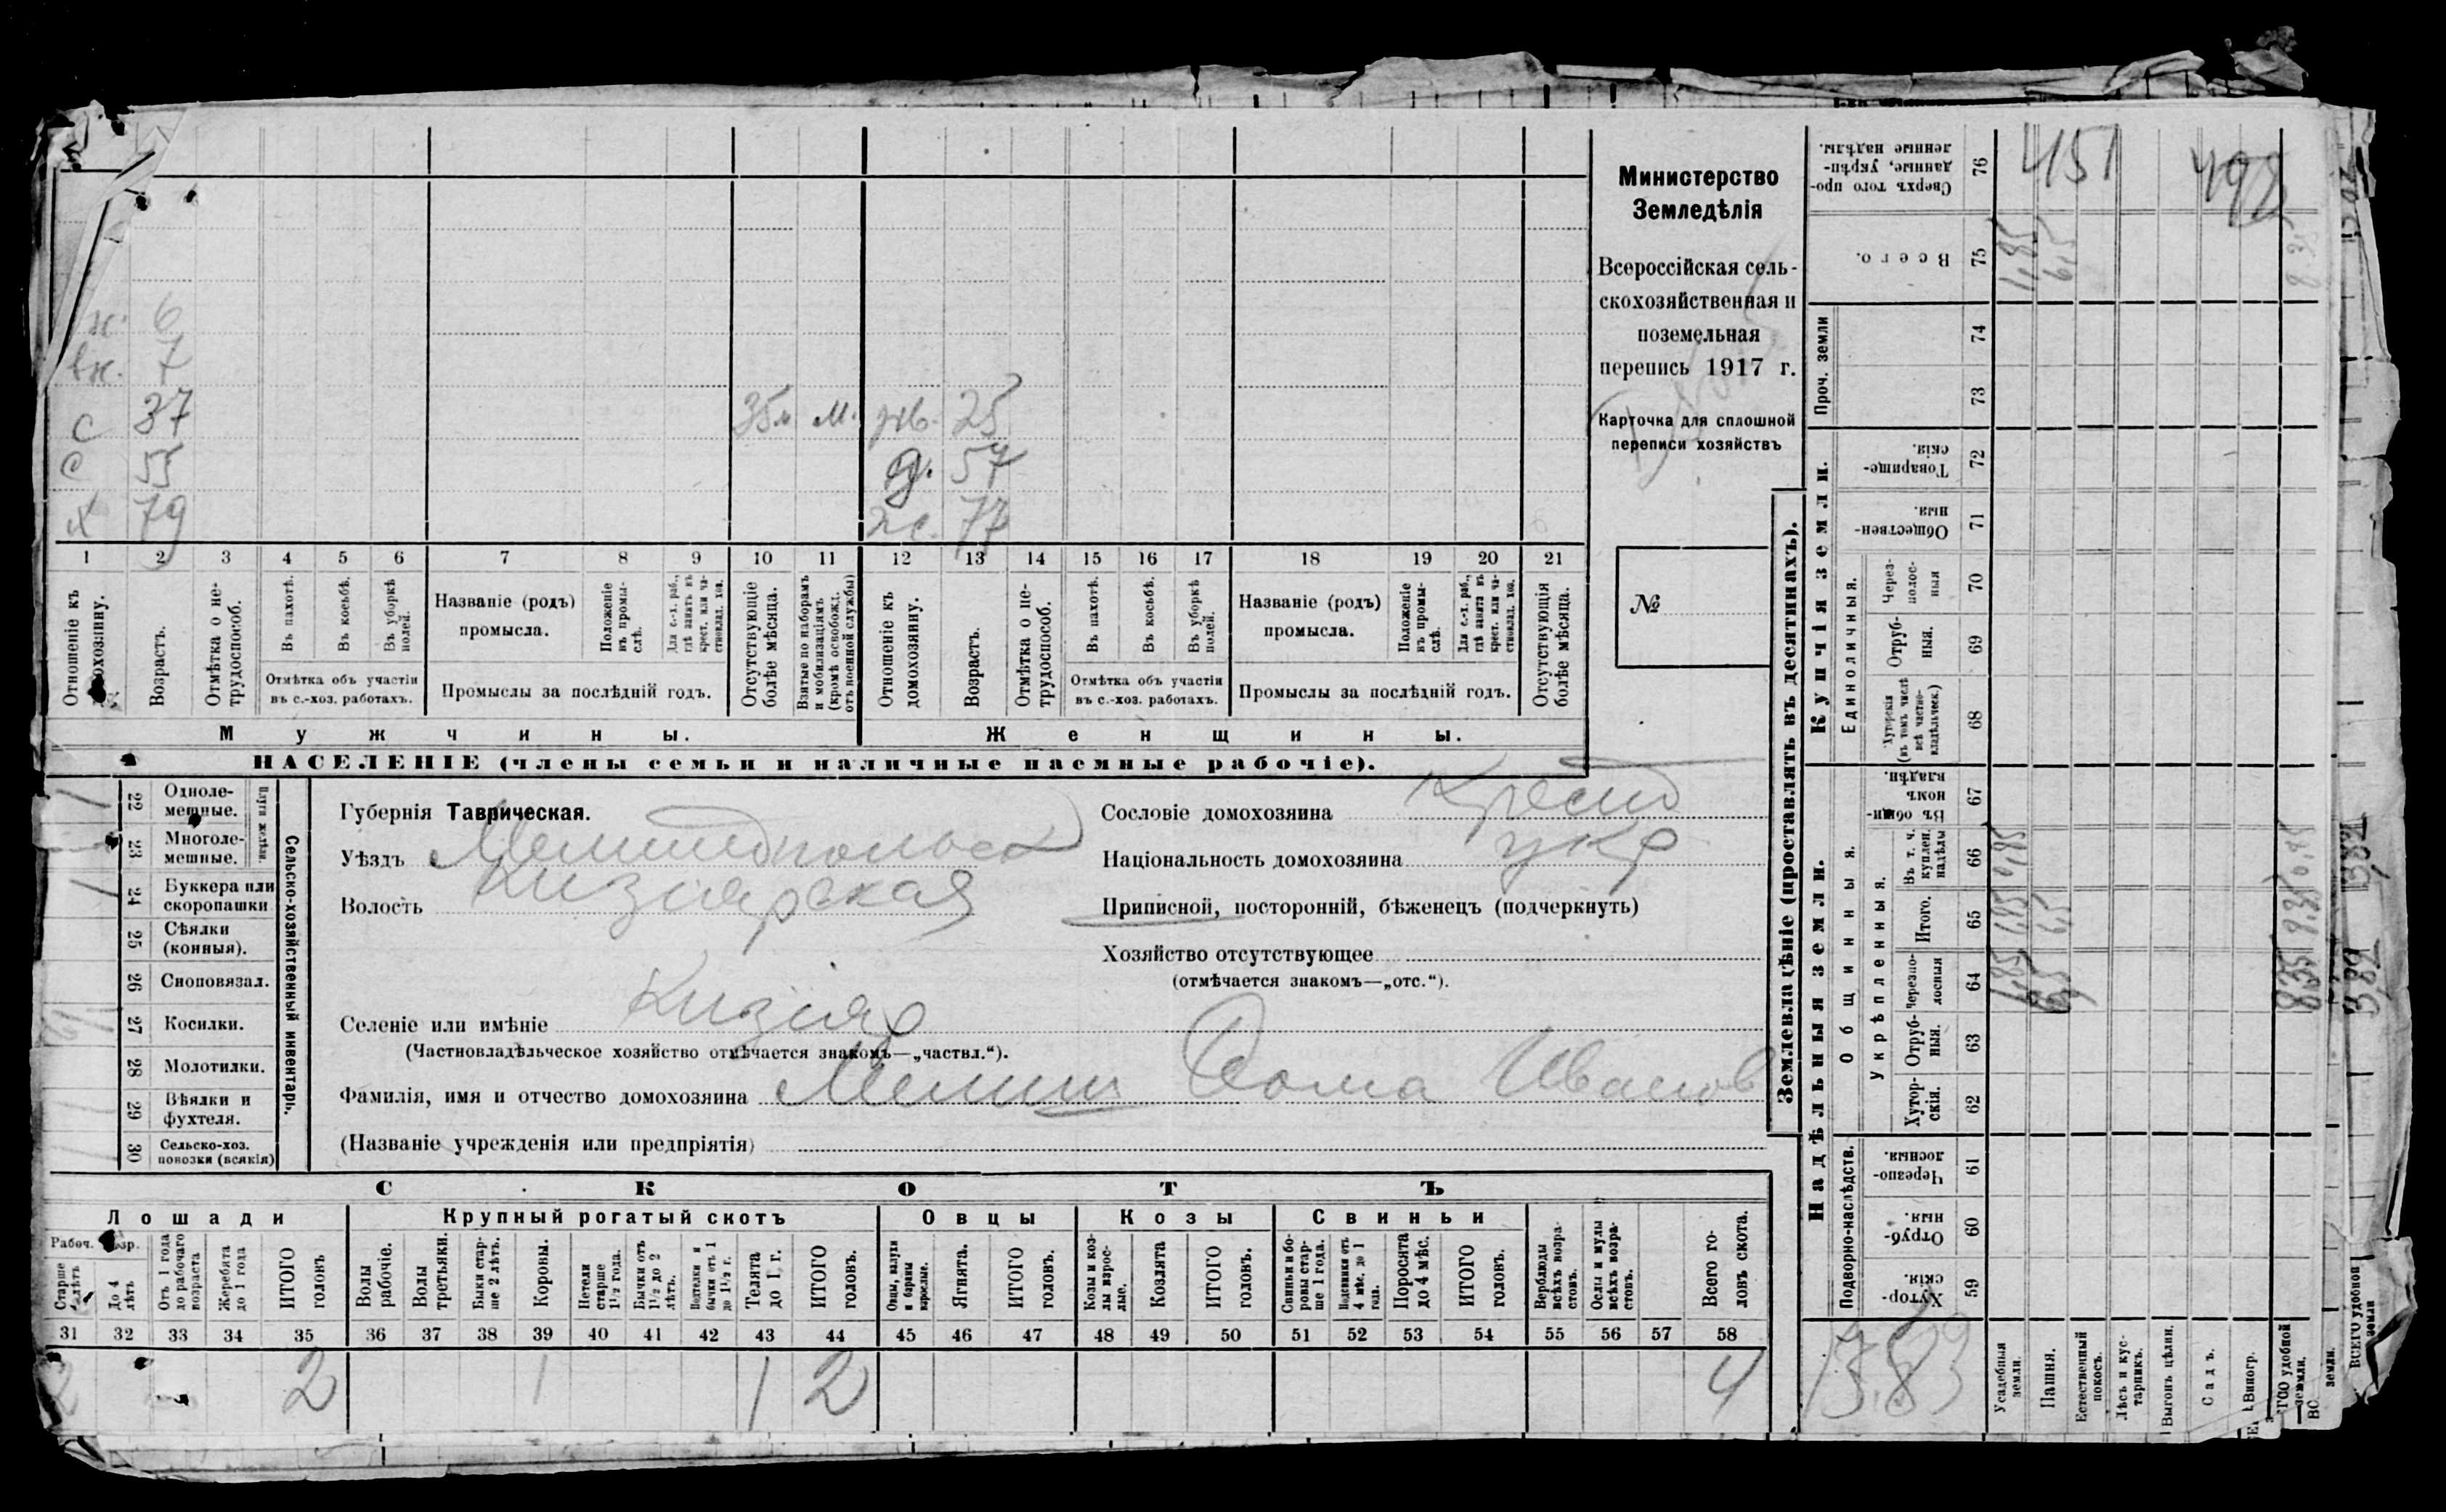 Министерство
Земледѣлія
Всероссійская сель-
скохозяйственная и
поземельная
перепись 1917 г.
Карточка для сплошной
переписи хозяйствъ
№
вн. 7
с 37 35 м. м. жв. 25
с 55 д. 57
х 79 жс. 77
1 2 3 4 5 6 7 8 9 10 11 12 13 14 15 16 17 18 19 20 21
Отношеніе къ домохозяину.
Возрастъ.
Отмѣтка о не-трудоспособ.
Въ пахотѣ.
Въ косьбѣ.
Въ уборкѣ полей.
Отмѣтка объ участіи
въ с.-хоз. работахъ.
Названіе (родъ)
промысла.
Положеніе въ промы-слѣ.
Для с.-х. раб., гдѣ занятъ въ крест. или ча-стновлад. хоз.
Промыслы за послѣдній годъ.
Отсутствующіе болѣе мѣсяца.
Взятые по наборамъ и мобилизаціямъ (кромѣ освобожд. отъ военной службы)
Отношеніе къ домохозяину.
Возрастъ.
Отмѣтка о не-трудоспособ.
Въ пахотѣ.
Въ косьбѣ.
Въ уборкѣ полей.
Отмѣтка объ участіи
въ с.-хоз. работахъ.
Названіе (родъ)
промысла.
Положеніе въ промы-слѣ.
Для с.-х. раб., гдѣ занята въ крест. или ча-стновлад. хоз.
Промыслы за послѣдній годъ.
Отсутствующія болѣе мѣсяца.
Мужчины. Женщины.
НАСЕЛЕНІЕ (члены семьи и наличные наемные рабочіе).
Сельско-хозяйственный инвентарь.
Плуги желѣзн.
22 Одноле-мешные.
23 Многоле-мешные.
24 Буккера или скоропашки
25 Сѣялки (конныя).
26 Сноповязал.
27 Косилки.
28 Молотилки.
29 Вѣялки и фухтеля.
30 Сельско-хоз. повозки (всякія)
Губернія Таврическая.
Уѣздъ Мелитопольск
Волость Кизиярская
Селеніе или имѣніе Кизияр
(Частновладѣльческое хозяйство отмѣчается знакомъ—„частвл.“).
Фамилія, имя и отчество домохозяина Мелиш Фома Иванов
(Названіе учрежденія или предпріятія)
Сословіе домохозяина крест
Національность домохозяина укр
Приписной, посторонній, бѣженецъ (подчеркнуть)
Хозяйство отсутствующее
(отмѣчается знакомъ—„отс.“).
СКОТЪ
Лошади Крупный рогатый скотъ Овцы Козы Свиньи
Рабоч. возр.
Старше 4 лѣтъ
До 4 лѣтъ
Отъ 1 года до рабочаго возраста
Жеребята до 1 года
ИТОГО головъ
Волы рабочіе.
Волы третьяки.
Быки стар-ше 2 лѣтъ.
Коровы.
Нетели старше 1½ года.
Бычки отъ 1½ до 2 лѣтъ.
Подтелки и бычки отъ 1 до 1½ г.
Телята до 1 г.
ИТОГО головъ.
Овцы, валухи и бараны взрослые.
Ягнята.
ИТОГО головъ.
Козы и коз-лы взрос-лые.
Козлята
ИТОГО головъ.
Свиньи и бо-ровы стар-ше 1 года.
Подсвинки отъ 4 мѣс. до 1 года.
Поросята до 4 мѣс.
ИТОГО головъ.
Верблюды всѣхъ возра-стовъ.
Ослы и мулы всѣхъ возра-стовъ.
Всего го-ловъ скота.
31 32 33 34 35 36 37 38 39 40 41 42 43 44 45 46 47 48 49 50 51 52 53 54 55 56 57 58
2 2 1 1 2 4
Землевладѣніе (проставлять въ десятинахъ).
Надѣльныя земли. Купчія земли.
Подворно-наслѣдств.
Общинныя.
Укрѣпленныя.
Единоличныя.
Проч. земли
59 Хутор-скія.
60 Отруб-ныя.
61 Черезпо-лосныя.
62 Хутор-скія.
63 Отруб-ныя.
64 Черезпо-лосныя
65 Итого.
66 Въ т. ч. куплен. надѣлы
67 Въ общин-номъ владѣн.
68 Хуторскія (въ томъ числѣ всѣ частно-владѣльческ.)
69 Отруб-ныя.
70 Через-полос-ныя
71 Обществен-ныя.
72 Товарище-скія.
73
74
75 Всего.
76 Сверхъ того про-данные, укрѣп-ленные надѣлы.
Усадебныя земли. 1,85 1,85 0,45 1,85
Пашня. 6,5 6,5 6,5
Естественный покосъ.
Лѣсъ и кус-тарникъ.
Выгонъ цѣлин.
Садъ.
Виногр.
ИТОГО удобной земли. 8,35 8,35 0,45 8,35
ВСЕГО удобной земли
451
492
13.83
389